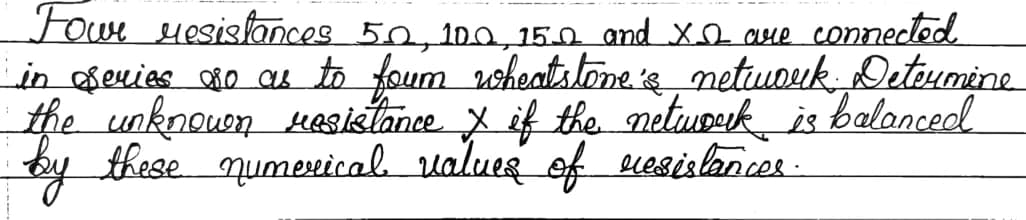 Four resistances 5Ω, 10Ω, 15Ω and XΩ are connected
in series so as to form wheatstone's network. Determine
the unknown resistance X if the network is balanced
by these numerical values of resistances.